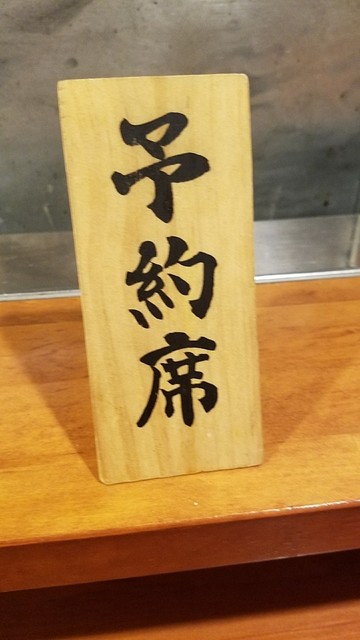 予約席